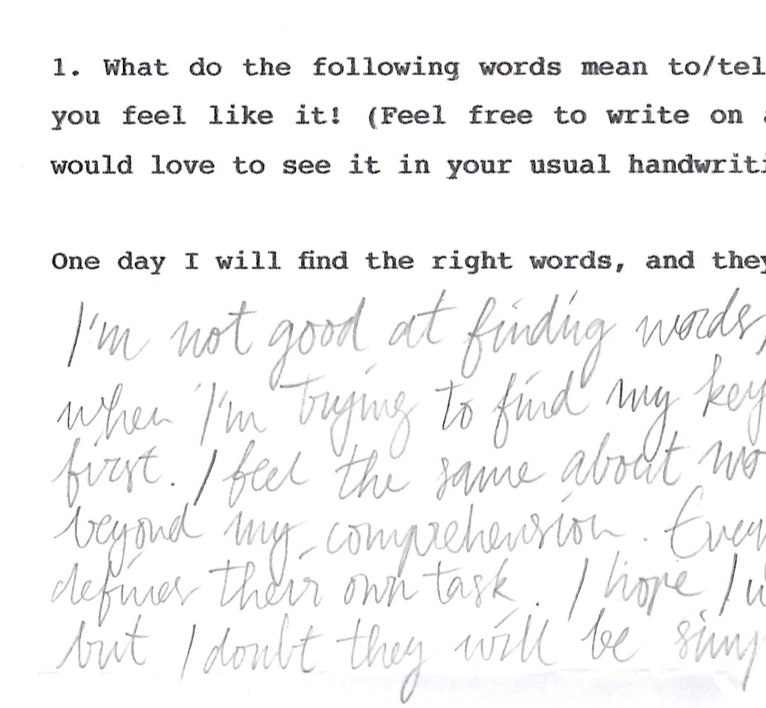 1. What do the following words mean to/tel
you feel like it! (Feel free to write on a
would love to see it in your usual handwriti
One day I will find the right words, and they
I'm not good at finding words,
when I'm trying to find my key
first. I feel the same about wo
beyond my comprehension. Every
defines their own task. I hope I w
but I doubt they will be simp